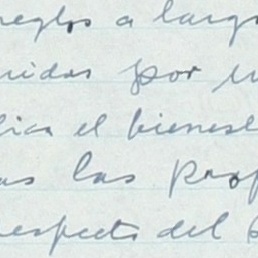 reglos a largo
nidas por u
lica el bienest
as las prop
respecto del b